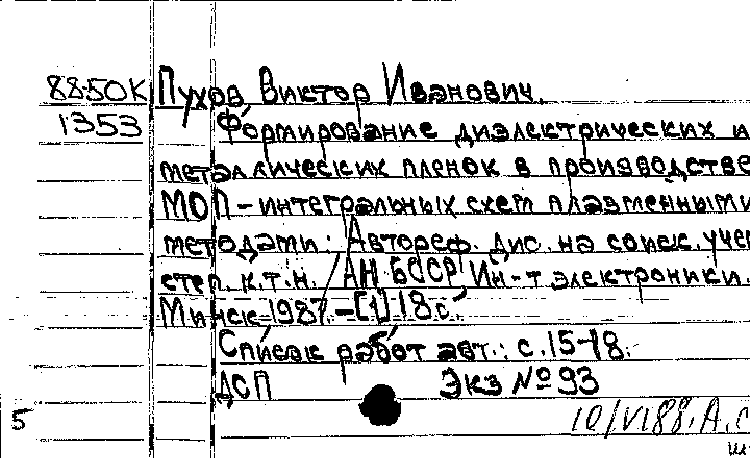 88-50К Пухов Виктор Иванович.
1353 Формирование диэлектрических и
металлических пленок в производстве
МОП-интегральных схем плазменными
методами: Автореф. дис. на соиск. учен
степ. к.т.н. АН БССР Ин-т электроники.
Минск 1987. - [1] 18 с.
Список работ авт.: с. 15-18.
ДСП Экз № 93
5 10/VI88. А.С